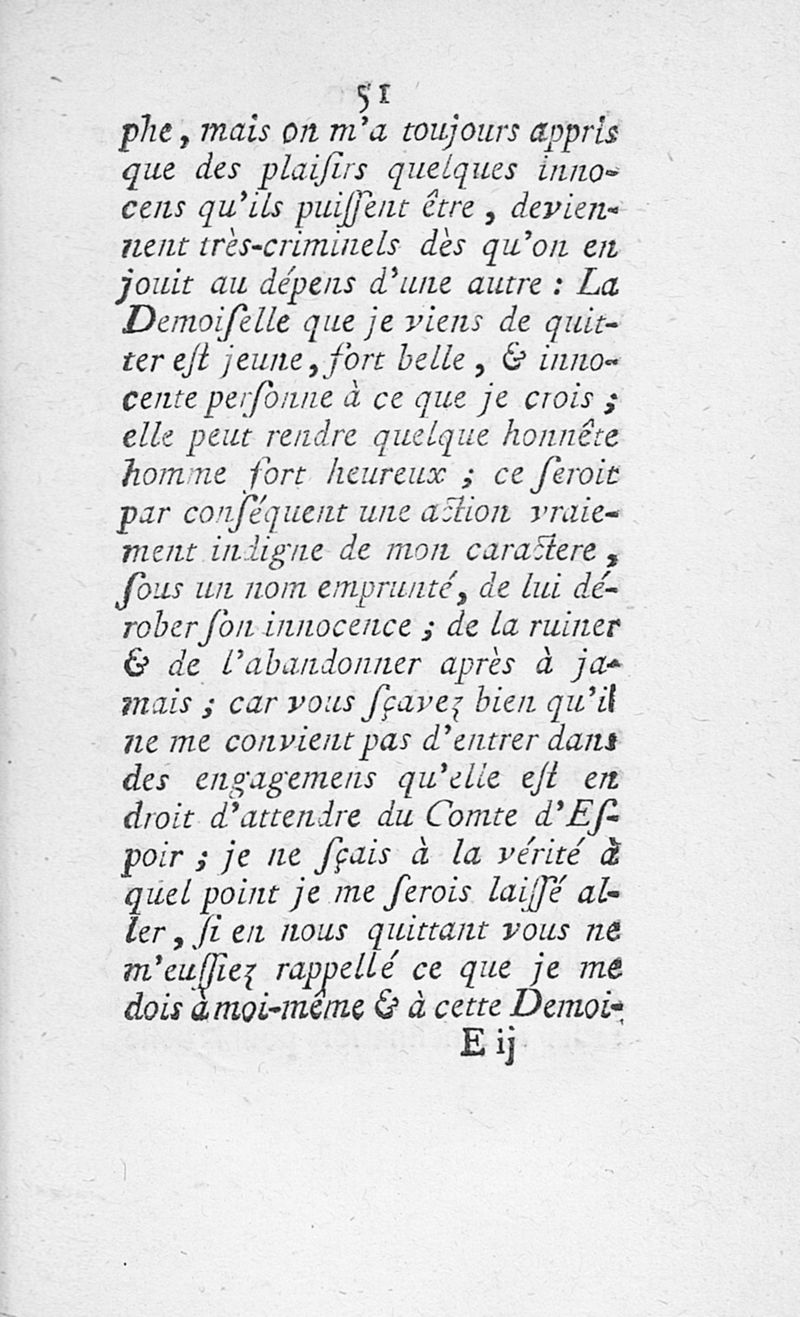 51
phe, mais on m'a toujours appris
que des plaiſirs quelques inno-
cens qu'ils puiſſent être, devien-
nent très-criminels dès qu'on en
jouit au dépens d'une autre : La
Demoiſelle que je viens de quit-
ter eſt jeune, fort belle, & inno-
cente perſonne à ce que je crois ;
elle peut rendre quelque honnête
homme fort heureux ; ce ſeroit
par conſéquent une action vraie-
ment indigne de mon caractere,
ſous un nom emprunté, de lui dé-
rober ſon innocence ; de la ruiner
& de l'abandonner après à ja-
mais ; car vous ſçavez bien qu'il
ne me convient pas d'entrer dans
des engagemens qu'elle eſt en
droit d'attendre du Comte d'Eſ-
poir ; je ne ſçais à la vérité à
quel point je me ſerois laiſſé al-
ler, ſi en nous quittant vous ne
m'euſſiez rappellé ce que je me
dois à moi-même & à cette Demoi-
E ij